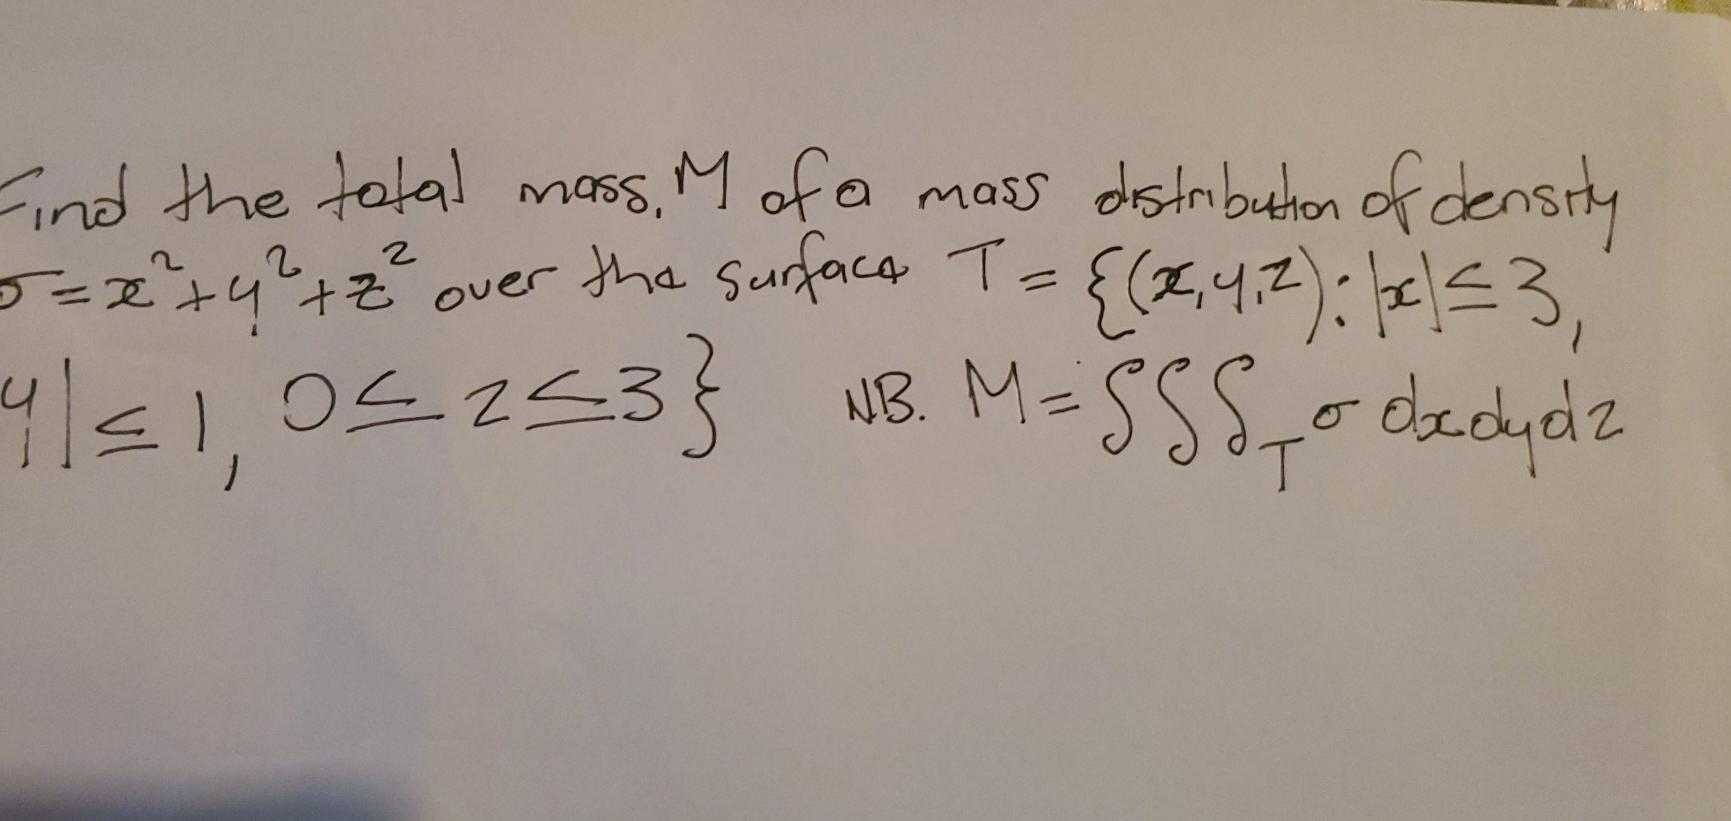 Find the total mass, M of a mass distribution of density
σ = x² + y² + z² over the surface T = {(x,y,z): |x| ≤ 3,
y| ≤ 1, 0 ≤ z ≤ 3} NB. M = ∫∫∫_T σ dxdydz